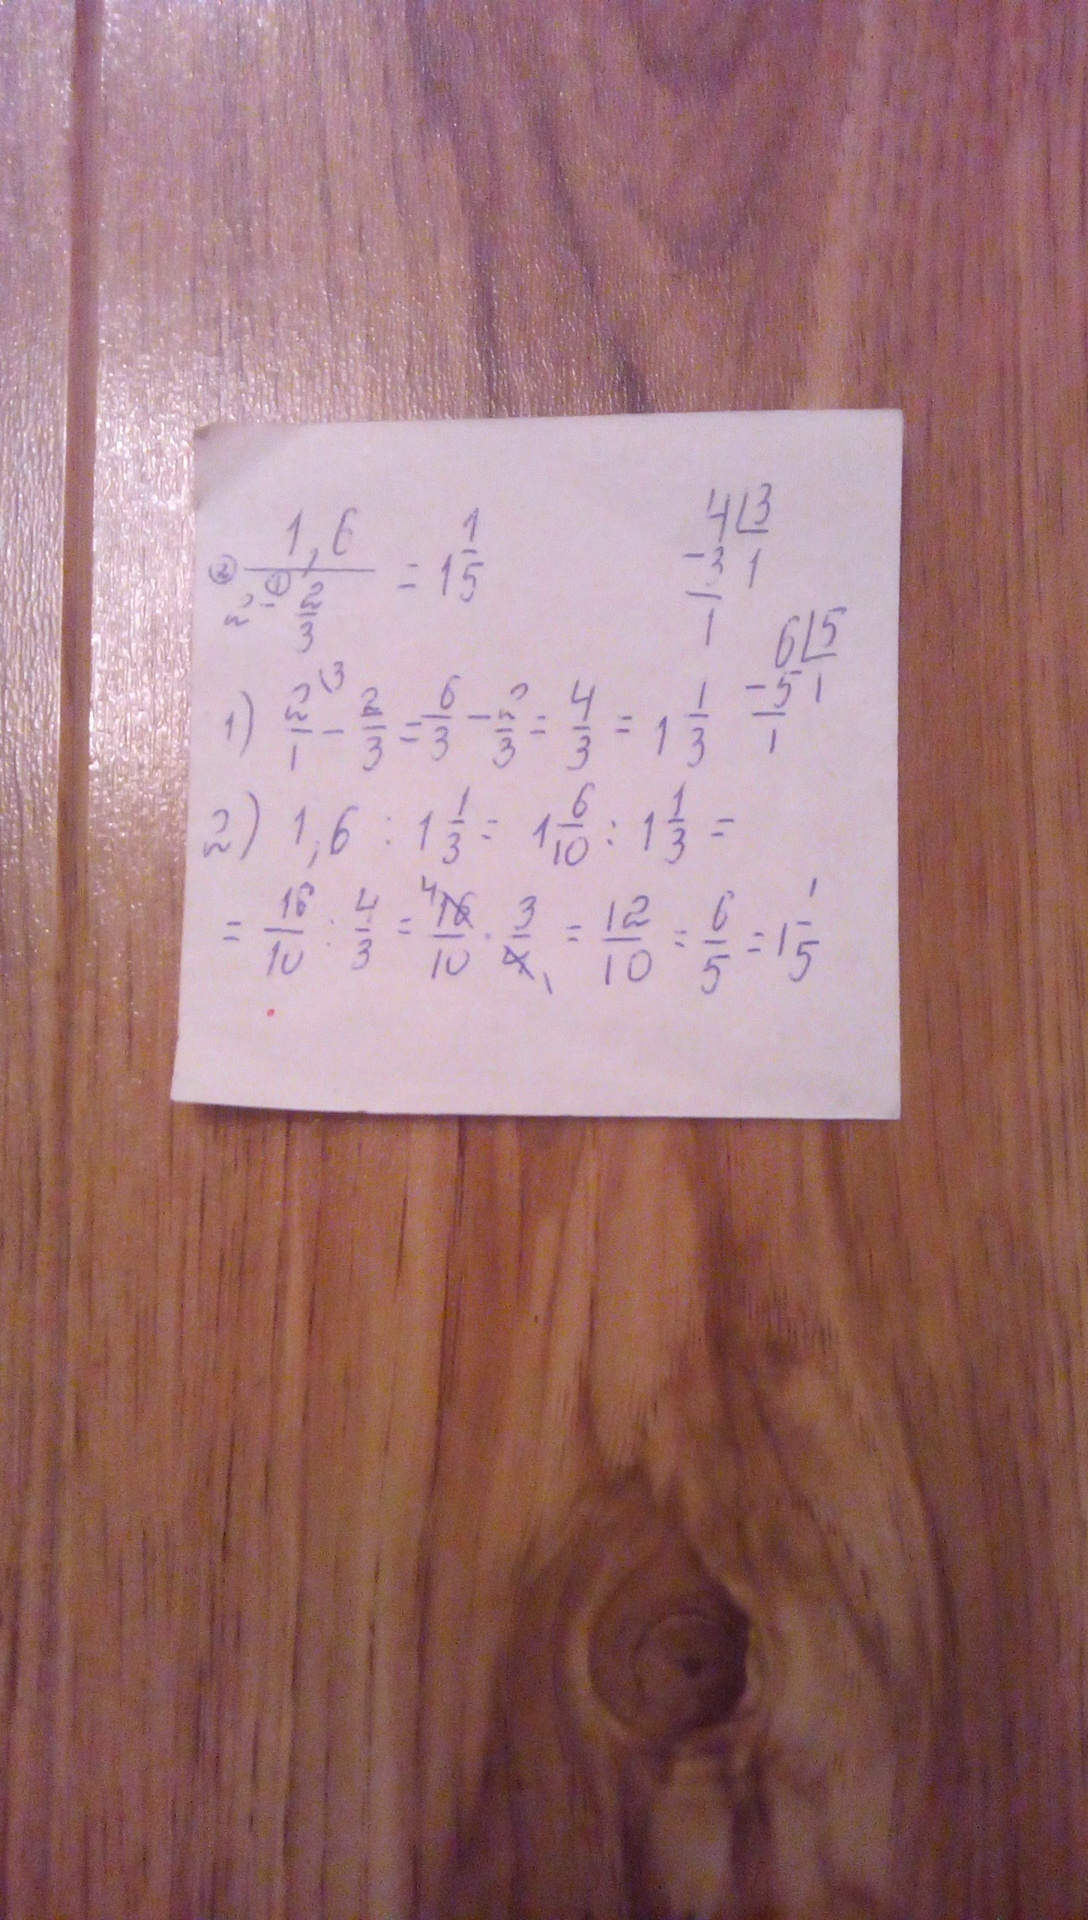 ② 1,6 / (2 -① 2/3) = 1 1/5
4 | 3
- 3 1
1
6 | 5
- 5 1
1
1) 2/1 \3 - 2/3 = 6/3 - 2/3 = 4/3 = 1 1/3
2) 1,6 : 1 1/3 = 1 6/10 : 1 1/3 =
= 16/10 : 4/3 = 4 16/10 · 3/4 1 = 12/10 = 6/5 = 1 1/5